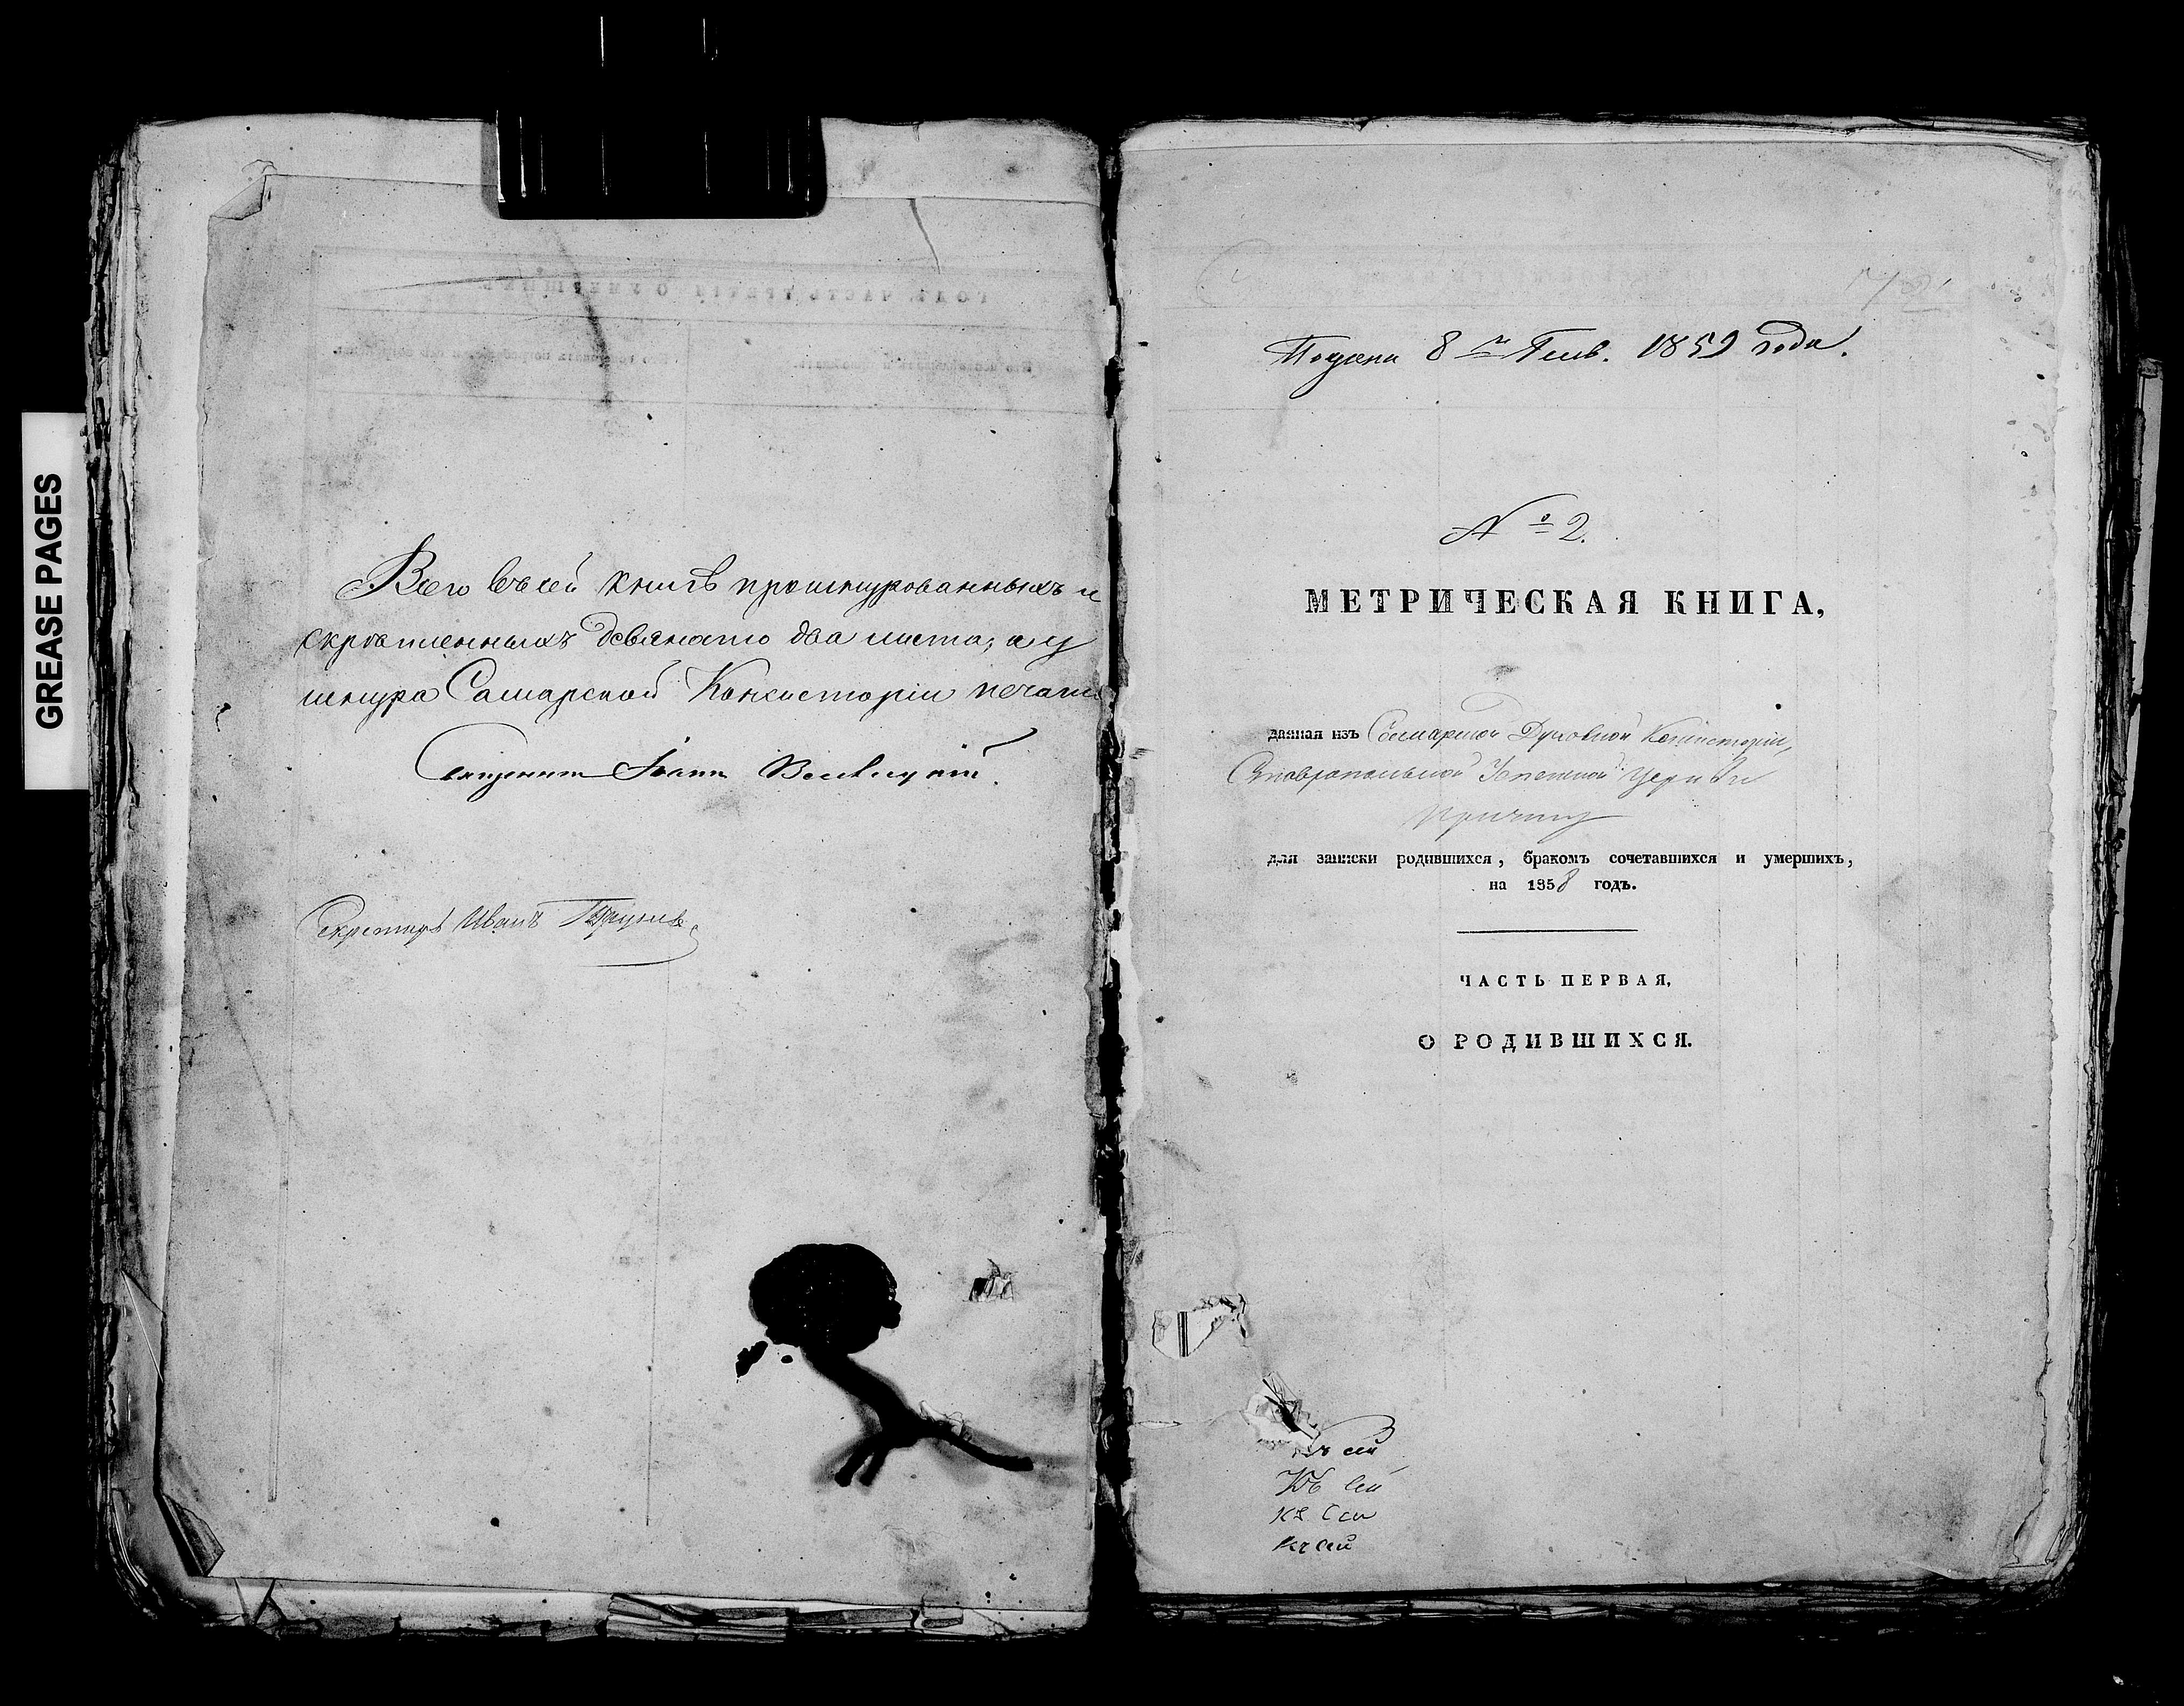 GREASE PAGES
Всего въ сей книгѣ прошнурованныхъ и
скрѣпленныхъ девяносто два листа; а у
шнура Самарской Консисторіи печать
Іоаннъ
Секретарь Иванъ
8 Генв. 1859 года.
№ 2.
МЕТРИЧЕСКАЯ КНИГА,
данная изъ Самарской Духовной Консисторіи,
Ставропольской Успенской Церкви
причту
для записки родившихся, бракомъ сочетавшихся и умершихъ,
на 1858 годъ.
ЧАСТЬ ПЕРВАЯ,
О РОДИВШИХСЯ.
Къ сей
Къ сей
къ сей
къ сей